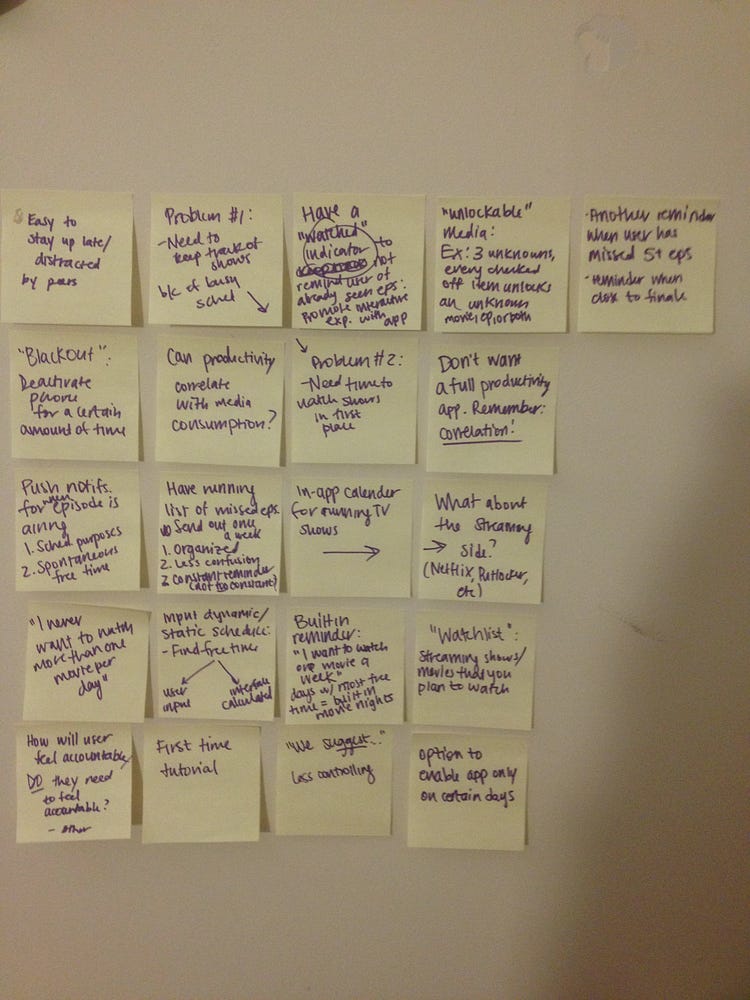 Easy to
stay up late/
distracted
by peers
Problem #1:
- Need to
keep track of
shows
b/c of busy
sched
Have a
"watched"
indicator to
not
remind user of
already seen eps:
Promote interactive
exp. with app
"unlockable"
media:
Ex: 3 unknowns,
every checked
off item unlocks
an unknown
movie, ep, or both
- Another reminder
when user has
missed 5+ eps
- reminder when
close to finale
"Blackout":
Deactivate
phone
for a certain
amount of time
Can productivity
correlate
with media
consumption?
Problem #2:
- Need time to
watch shows
in first
place
Don't want
a full productivity
app. Remember:
correlation!
Push notifs.
for when episode is
airing
1. Sched purposes
2. Spontaneous
free time
Have running
list of missed eps.
Send out once
a week
1. Organized
2. Less confusion
3. Constant reminder
(not too constant)
In-app calender
for running TV
shows
What about
the streaming
side?
(Netflix, Putlocker,
etc)
"I never
want to watch
more than one
movie per
day"
Input dynamic/
static schedule:
- Find free times
user
input
interface
calculated
Built in
reminder:
"I want to watch
one movie a
week"
days w/ most free
time = built in
movie nights
"Watchlist":
Streaming shows/
movies that you
plan to watch
How will user
feel accountable/
DO they need
to feel
accountable?
- other
First time
tutorial
"We suggest..."
Less controlling
option to
enable app only
on certain days